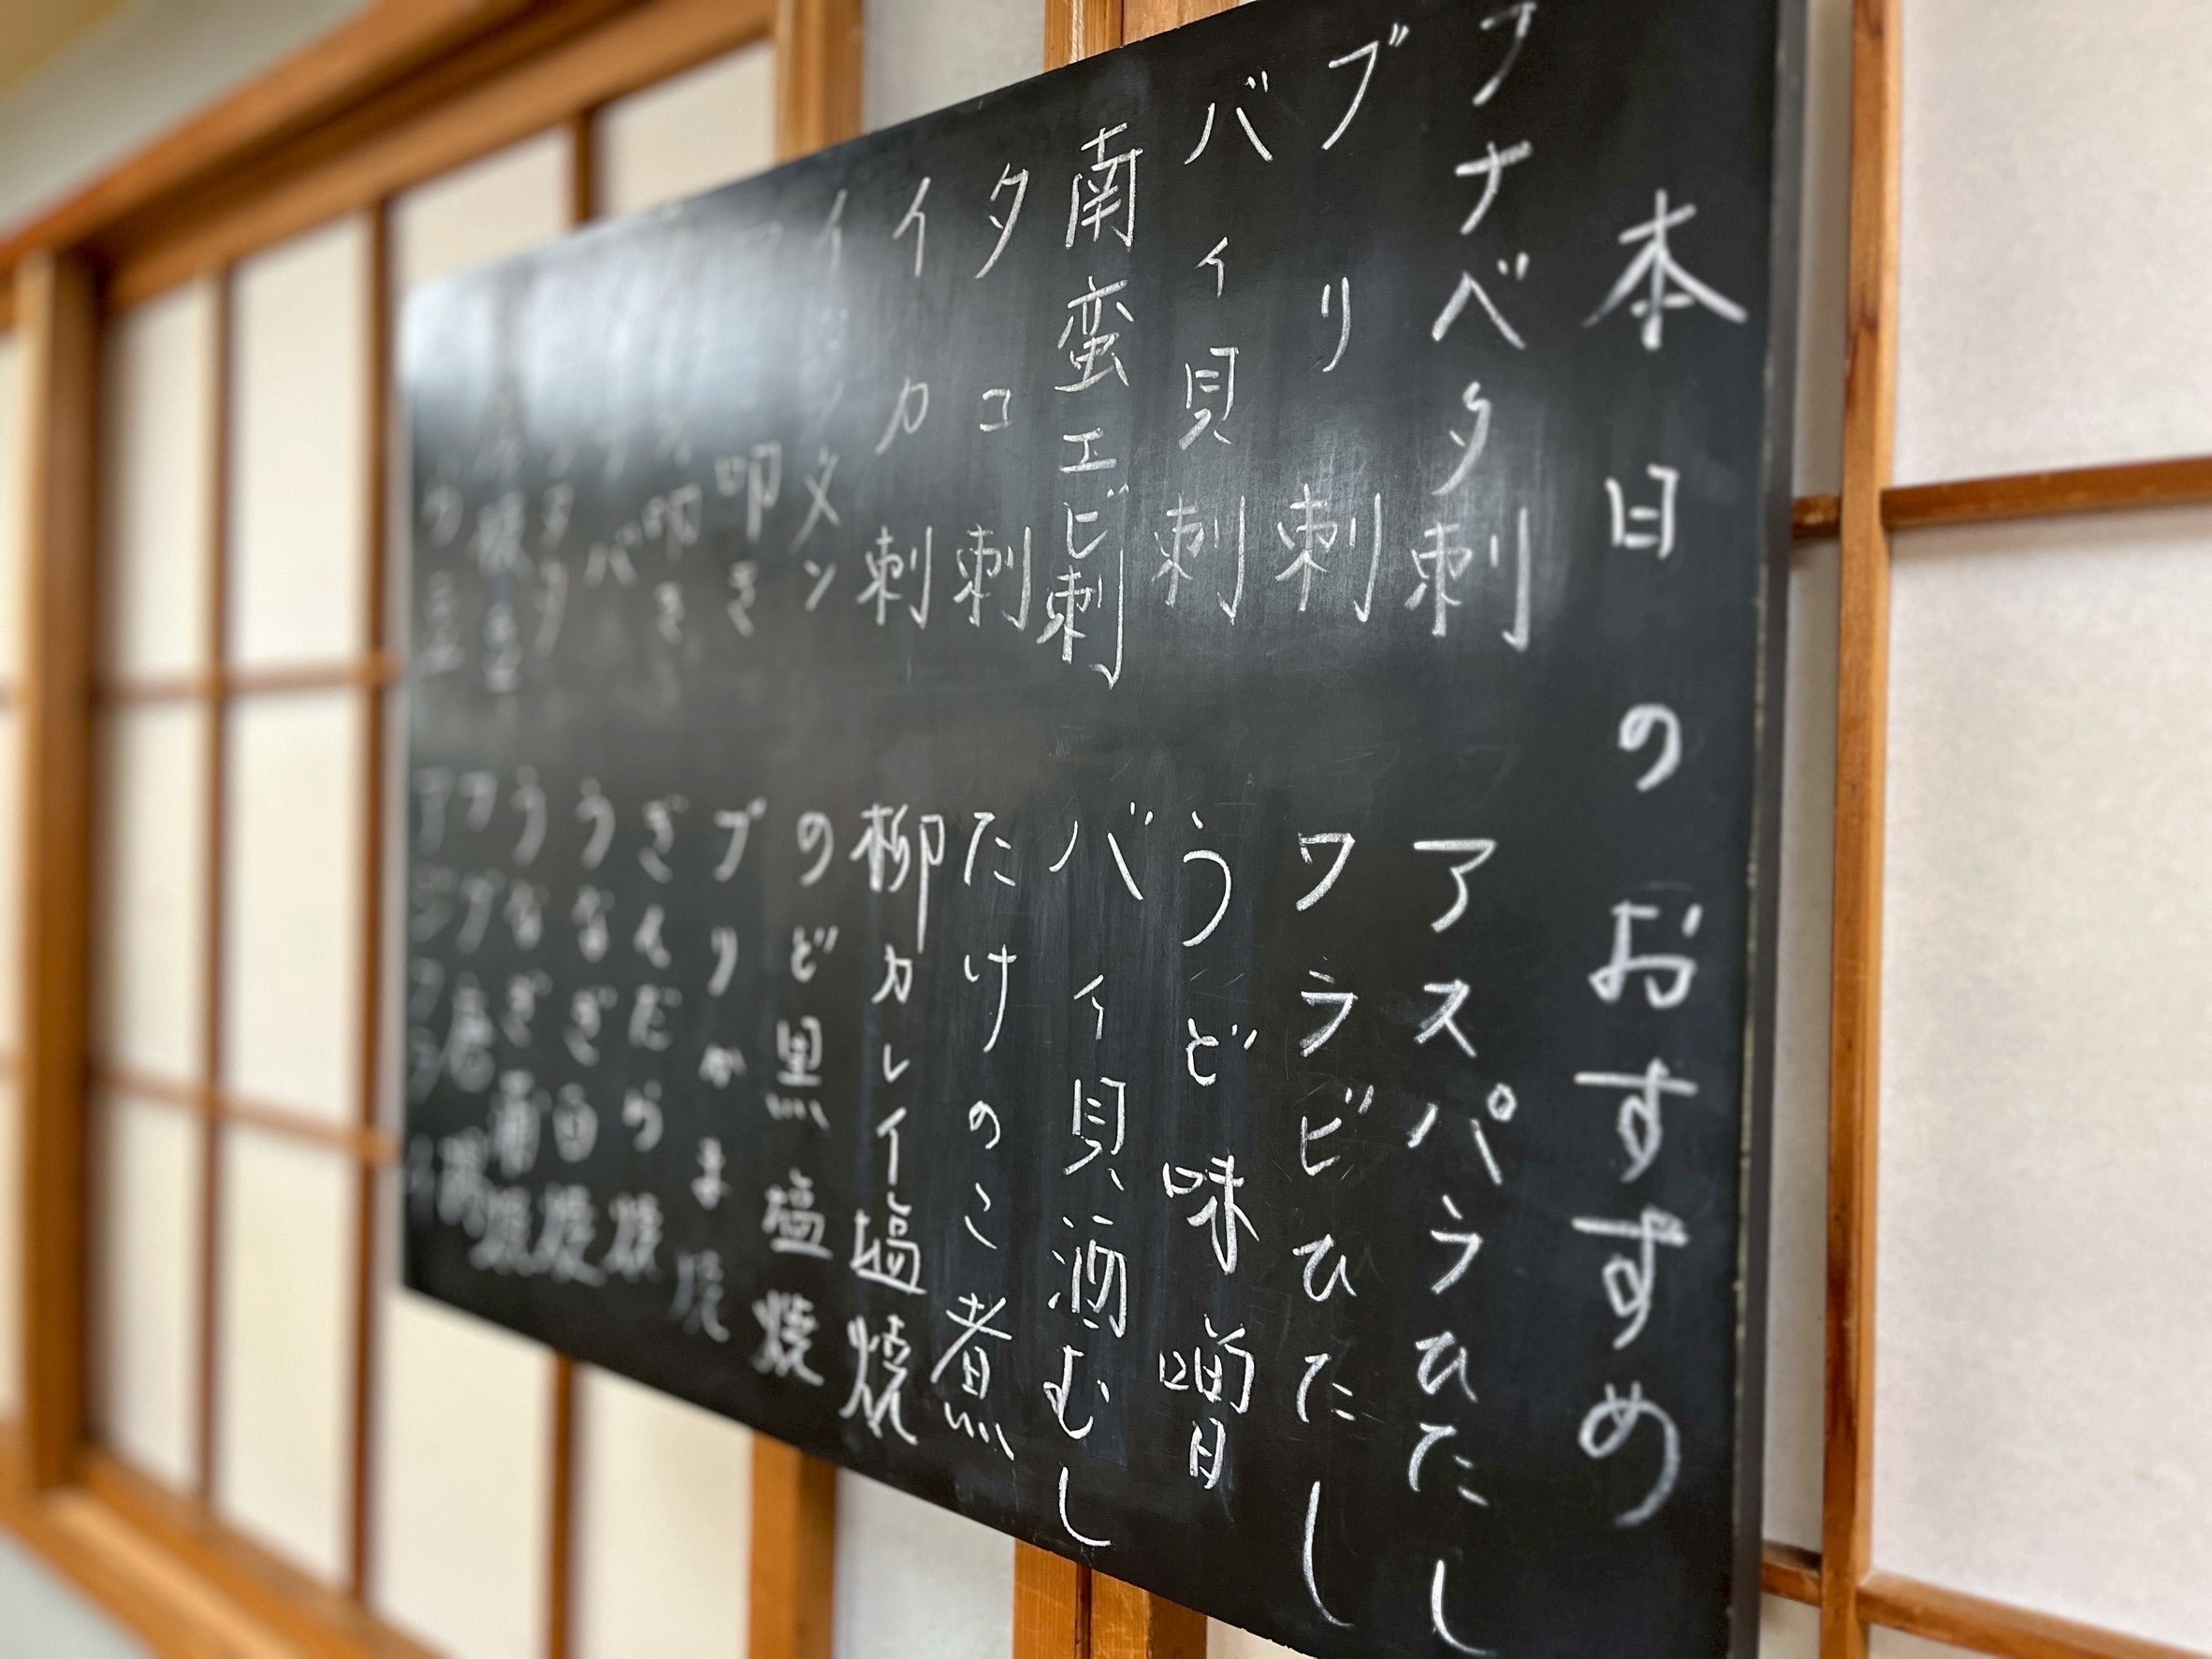 本日のおすすめ
ナベタ刺
ブリ刺
バイ貝刺
南蛮エビ刺
タコ刺
イカ刺
イメン
叩き
叩き
バ
アスパラひたし
ワラビひたし
うど味噌
バイ貝酒むし
たけのこ煮
柳カレイ塩焼
のど黒塩焼
ブリかま焼
ぎんだら焼
うなぎ白焼
うなぎ蒲焼
フグ唐揚
アジフライ